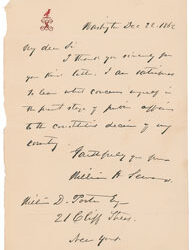 Washington Dec 22. 186
My dear Sir
I thank you sincerely for
your kind letter. I am
to leave what concerns myself in
the present stage of public affairs
to the considerate decision of my
country.
Faithfully your
William H. Seward
William D. Porter Esq
21 Cliff Street
New York